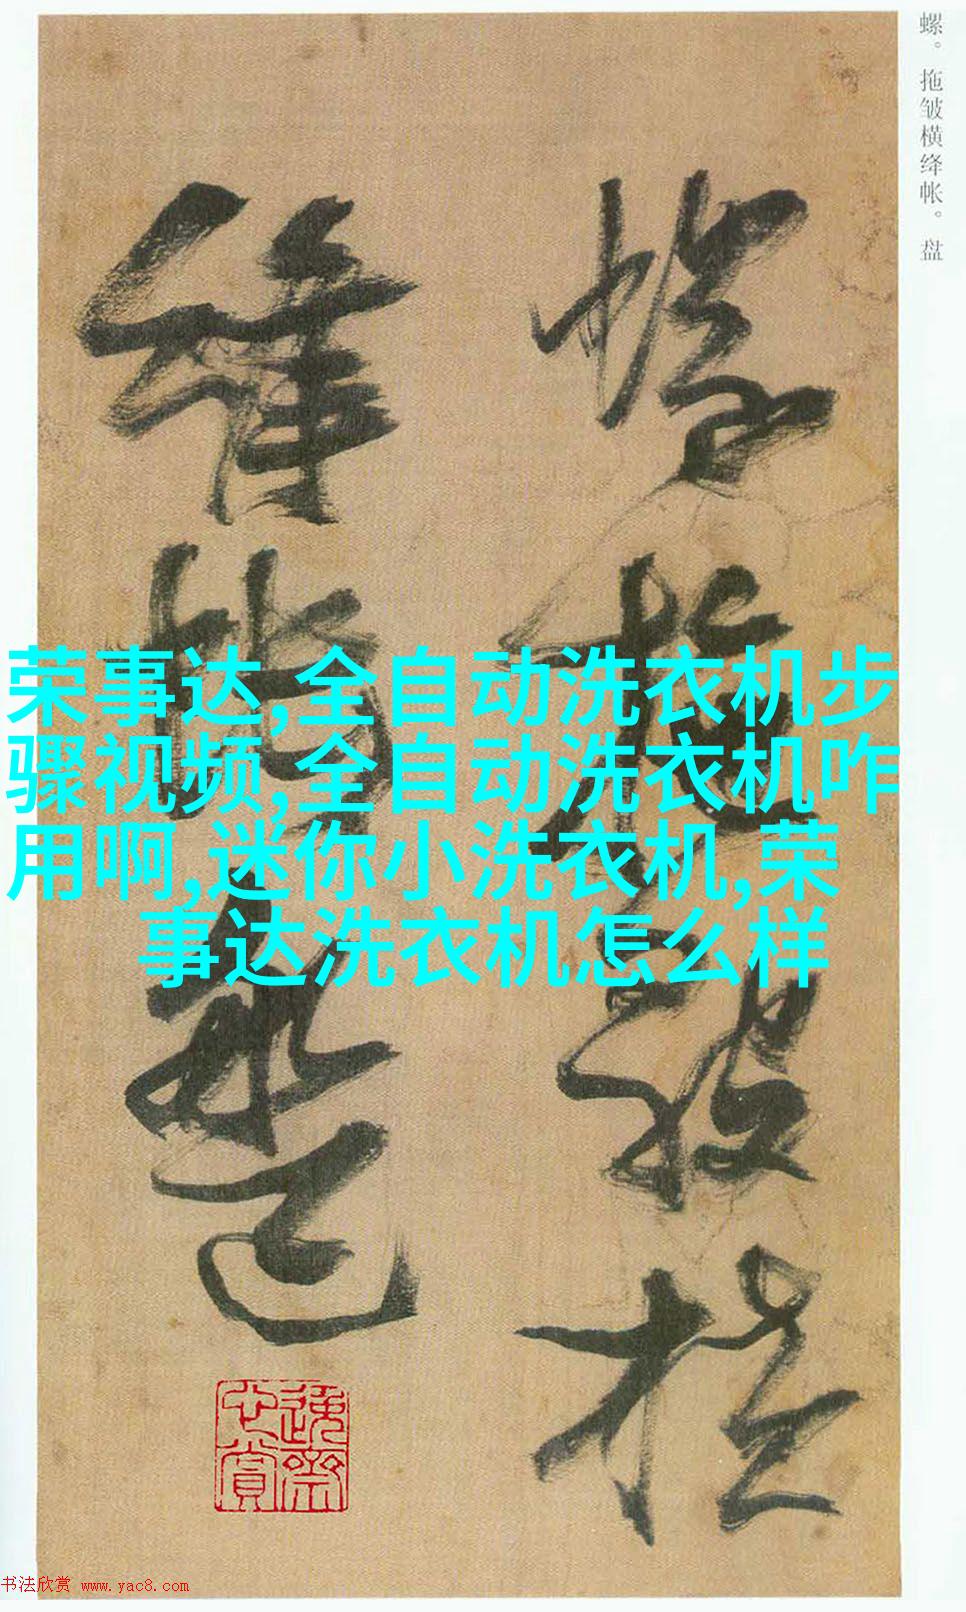 螺。拖皱横绛帐。盘
螺拖皱横
绛帐盘
荣事达,全自动洗衣机步
骤视频,全自动洗衣机咋
用啊,迷你小洗衣机,荣
事达洗衣机怎么样
书法欣赏 www.yac8.com